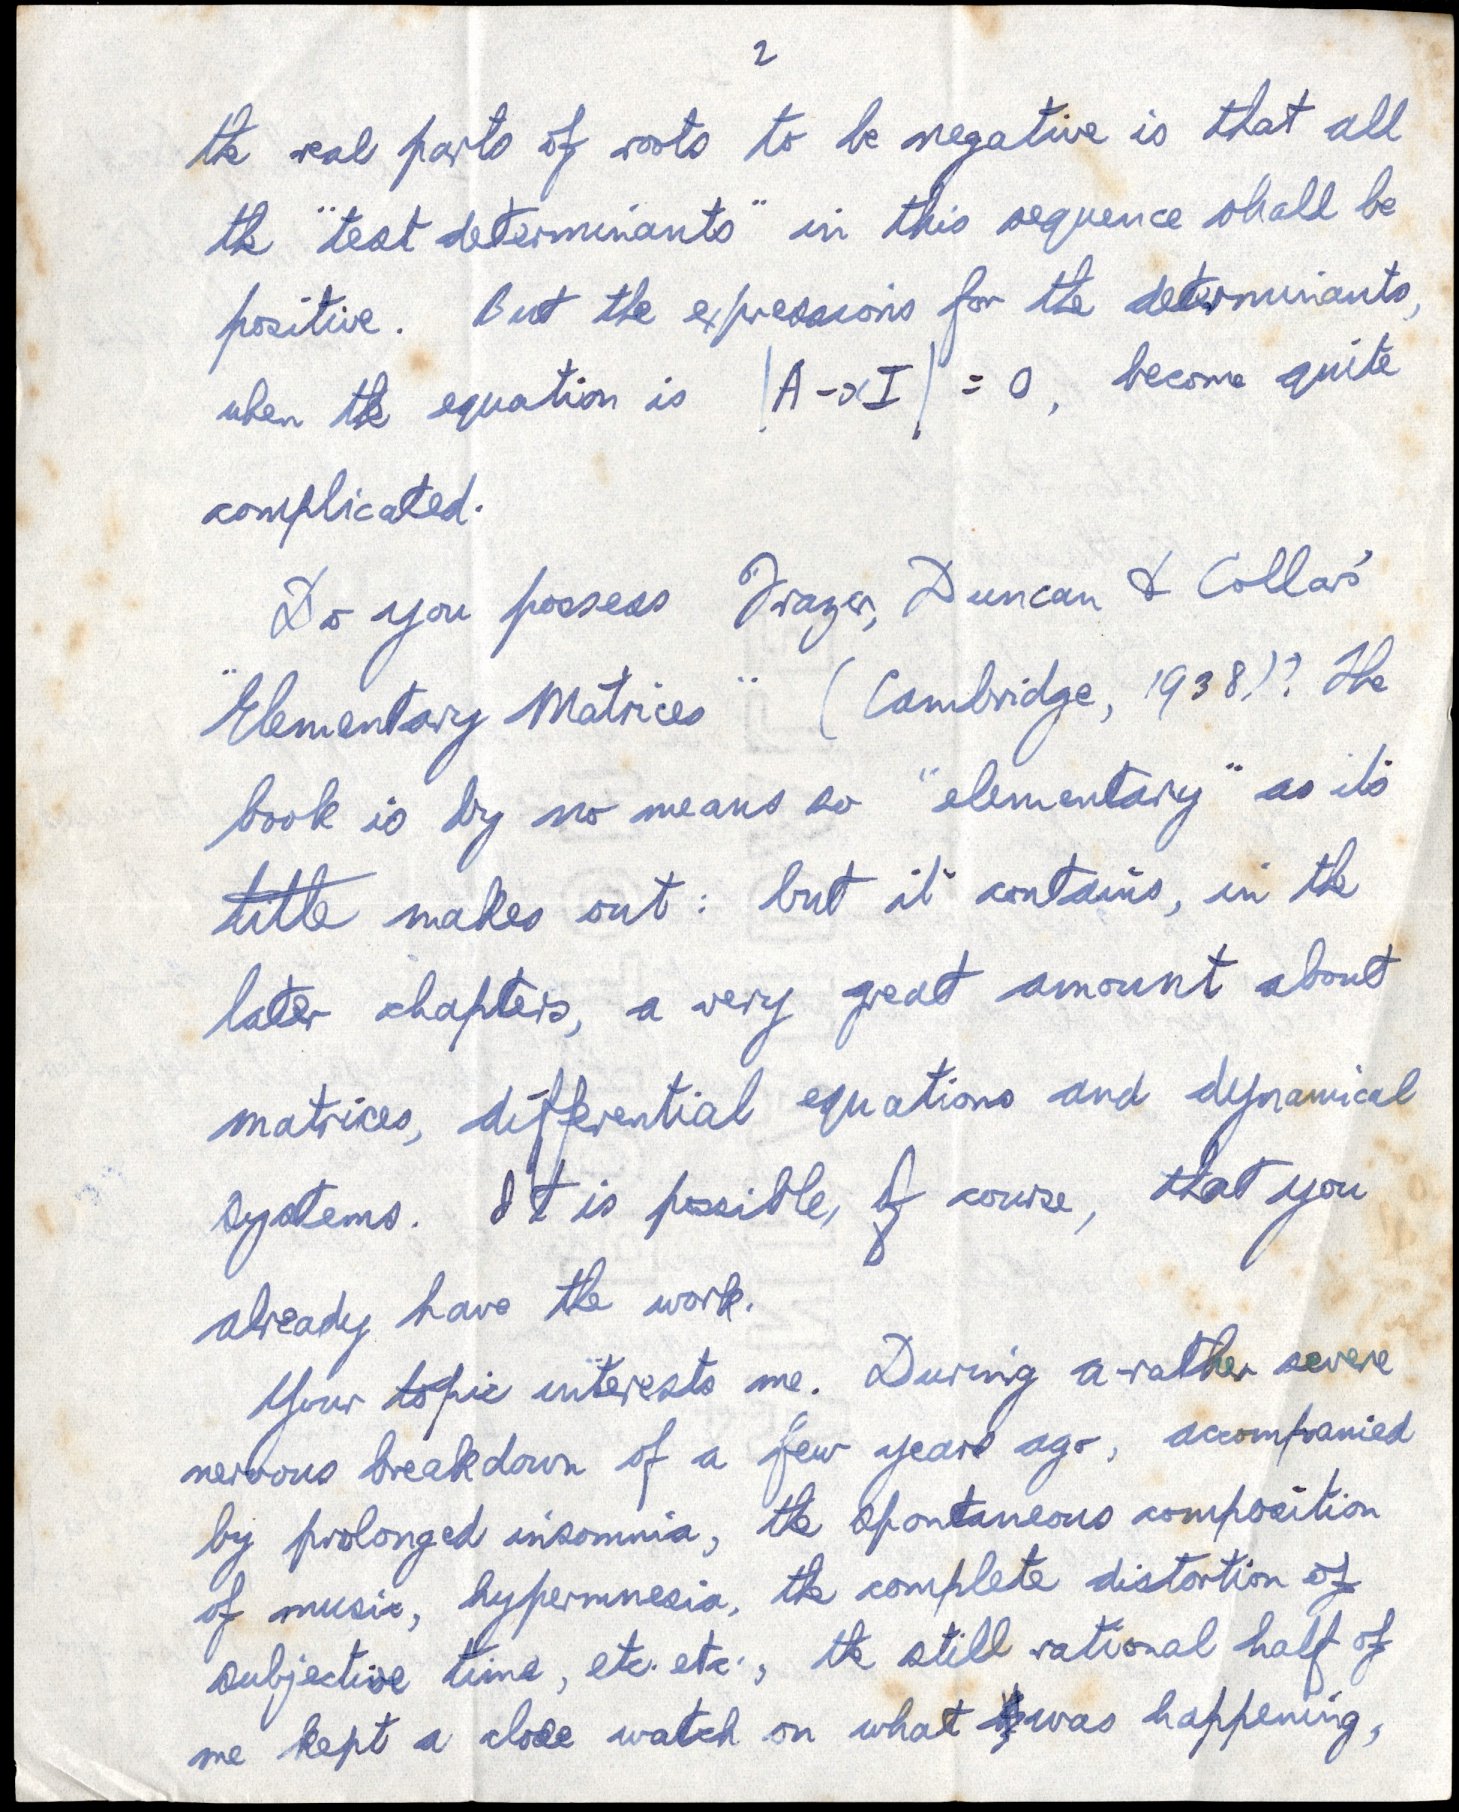 2
the real parts of roots to be negative is that all
the "test determinants" in this sequence shall be
positive. But the expressions for the determinants,
when the equation is |A - xI| = 0, become quite
complicated.
Do you possess Frazer, Duncan & Collar's
"Elementary Matrices" (Cambridge, 1938)? The
book is by no means so "elementary" as its
title makes out: but it contains, in the
later chapters, a very great amount about
matrices, differential equations and dynamical
systems. It is possible, of course, that you
already have the work.
Your topic interests me. During a rather severe
nervous breakdown of a few years ago, accompanied
by prolonged insomnia, the spontaneous composition
of music, hypermnesia, the complete distortion of
subjective time, etc. etc., the still rational half of
me kept a close watch on what was happening,